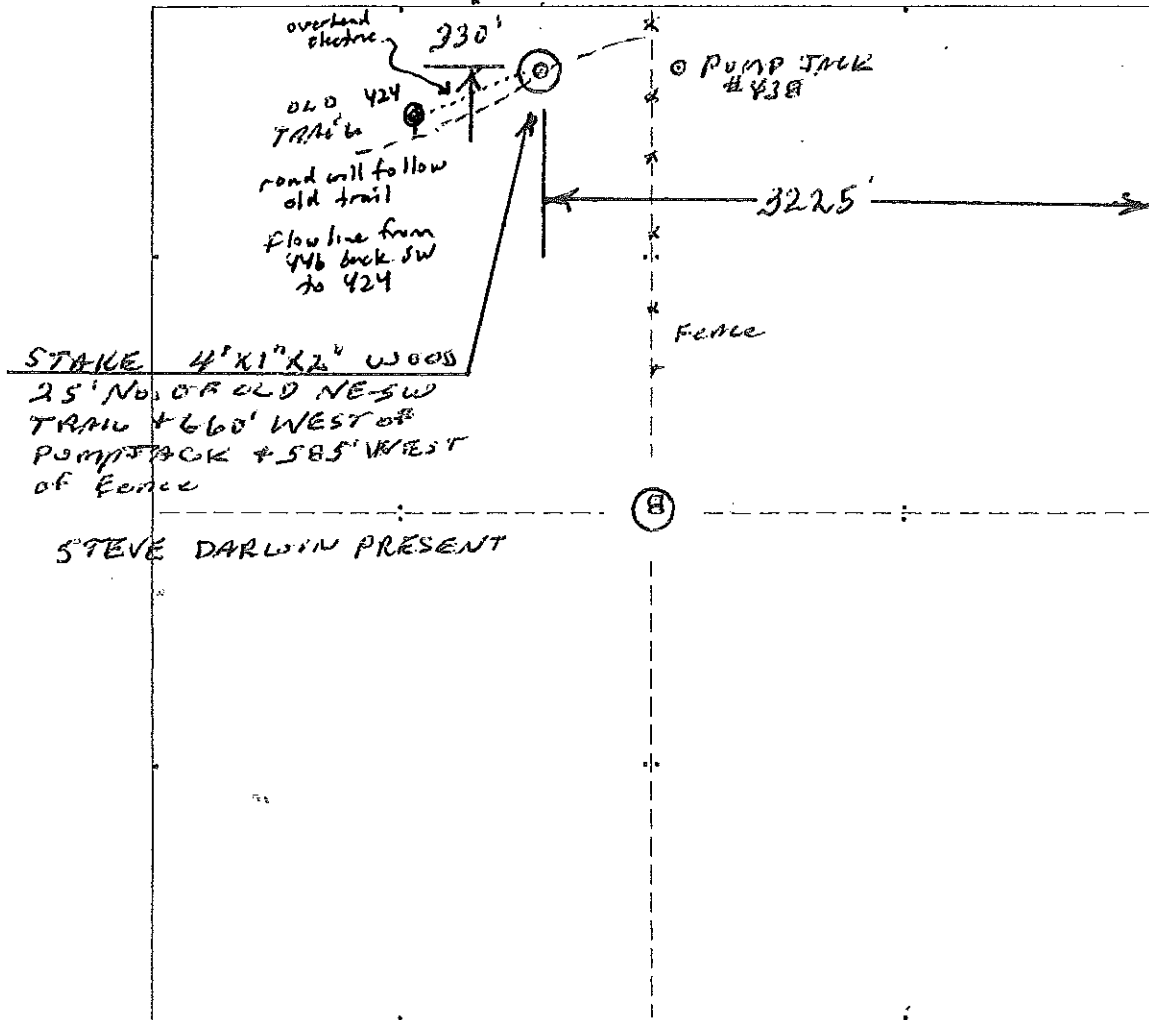 overhead
electric
330'
OLD 424
TRAIL
road will follow
old trail
flow line from
446 back SW
to 424
PUMP JACK
#438
3225'
Fence
STAKE 4'X1"X2" WOOD
25' No. OF OLD NE-SW
TRAIL + 660' WEST of
PUMPJACK + 585' WEST
of Fence
8
STEVE DARWIN PRESENT